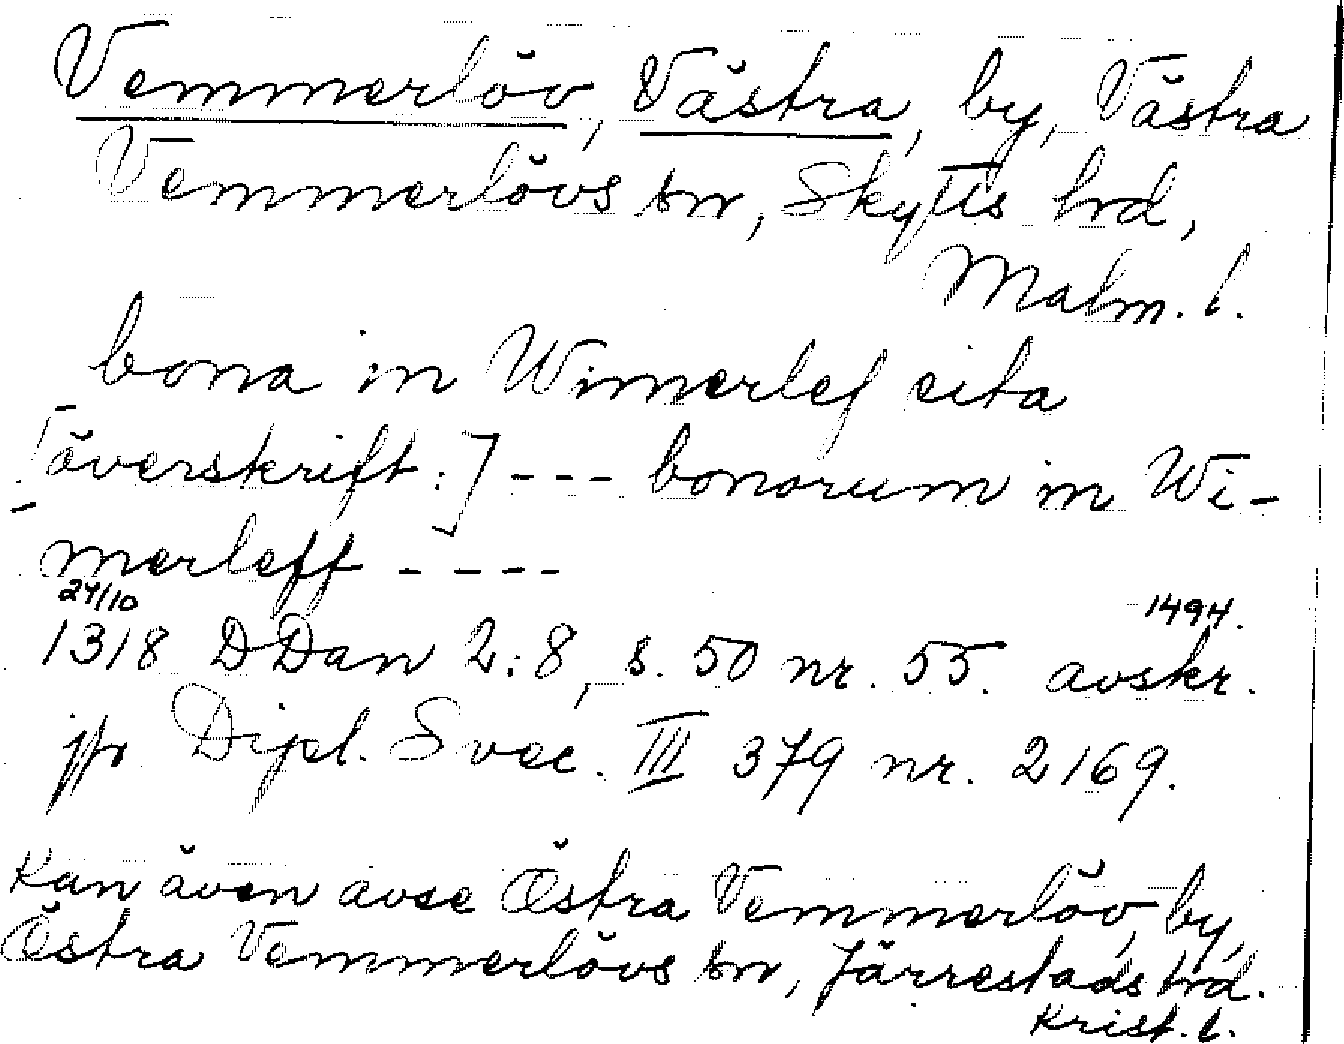 Vemmerlöv, Västra, by, Västra
Vemmerlövs sn, Skytts hrd,
Malm. l.
bona in Wimerlef sita
[överskrift:] --- bonorum in Wi-
merleff ----
24/10 1494.
1318 DDan 2:8, s. 50 nr. 55. avskr.
jfr Dipl. Svec. III 379 nr. 2169.
Kan även avse Östra Vemmerlöv, by,
Östra Vemmerlövs sn, Järrestads hrd.
Krist. l.